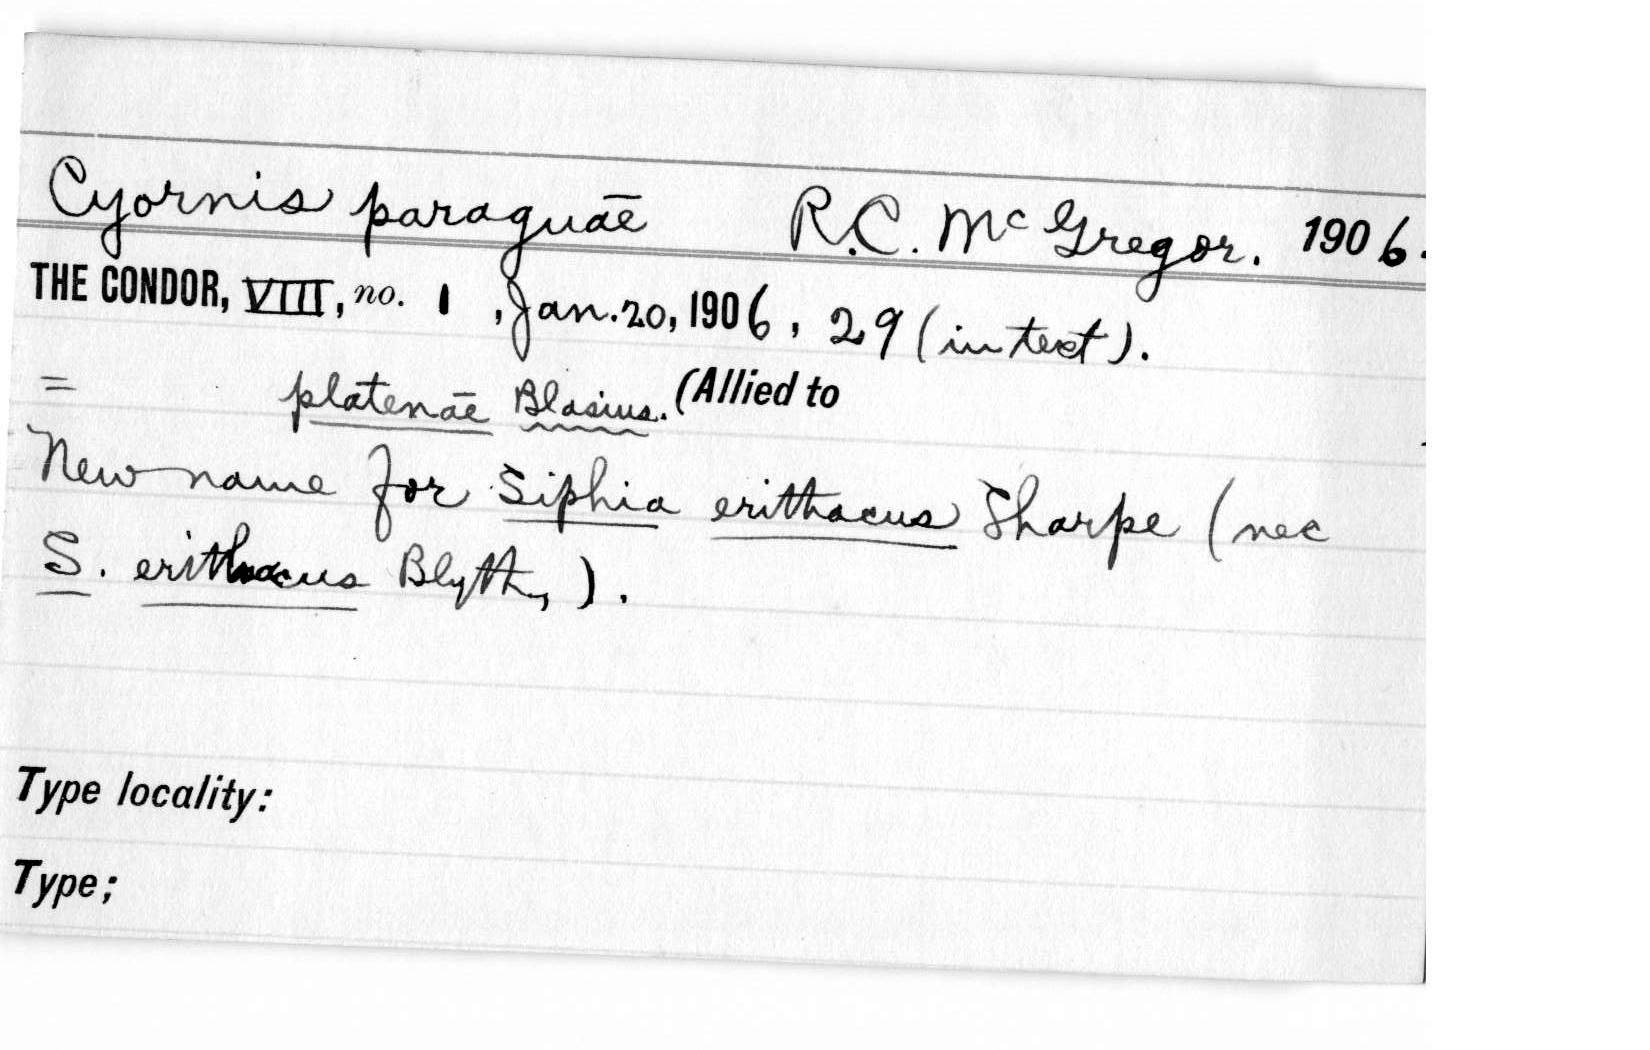 Cyornis paraguæ R.C. McGregor. 1906.
THE CONDOR, VIII, no. 1, Jan. 20, 1906, 29 (in text).
= platenæ Blasius. (Allied to
New name for Siphia erithacus Sharpe (nec
S. erithacus Blyth,).
Type locality:
Type;